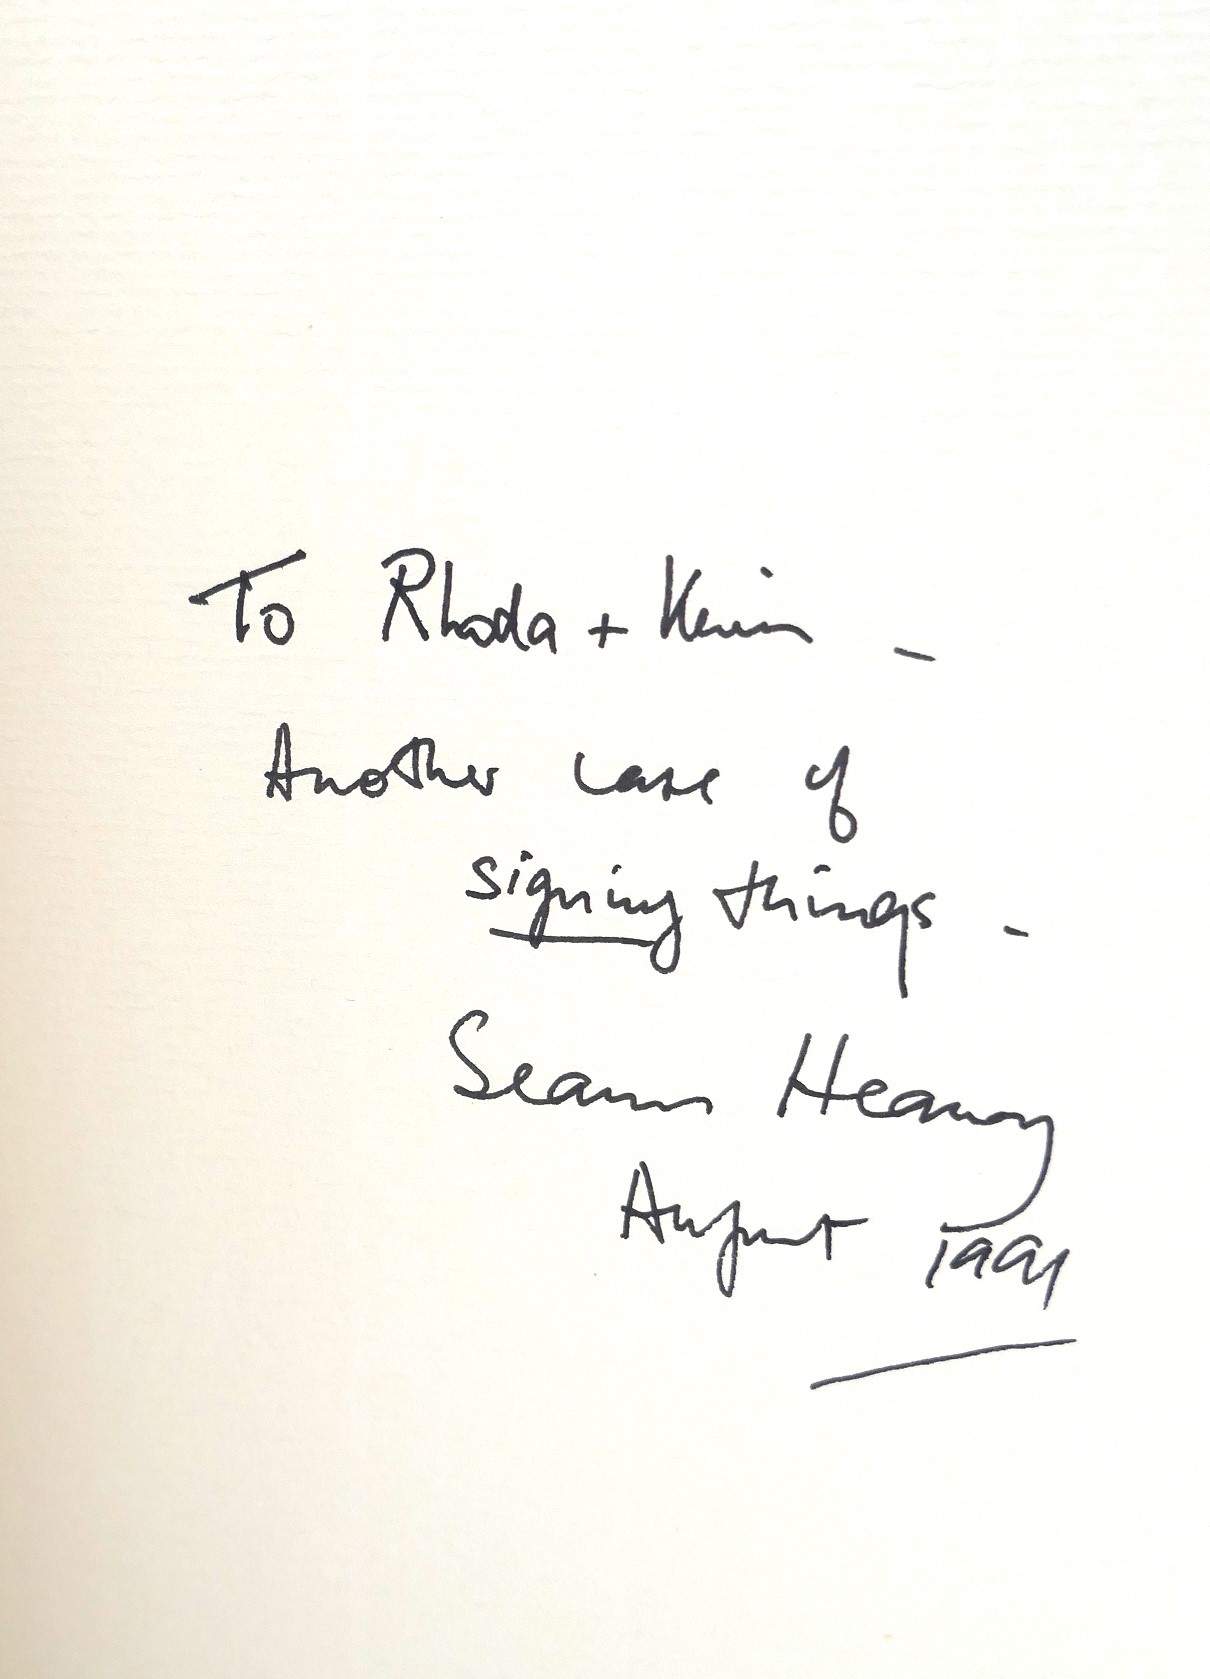 To Rhoda + Kevin –
Another case of
signing things –
Seamus Heaney
August 1991